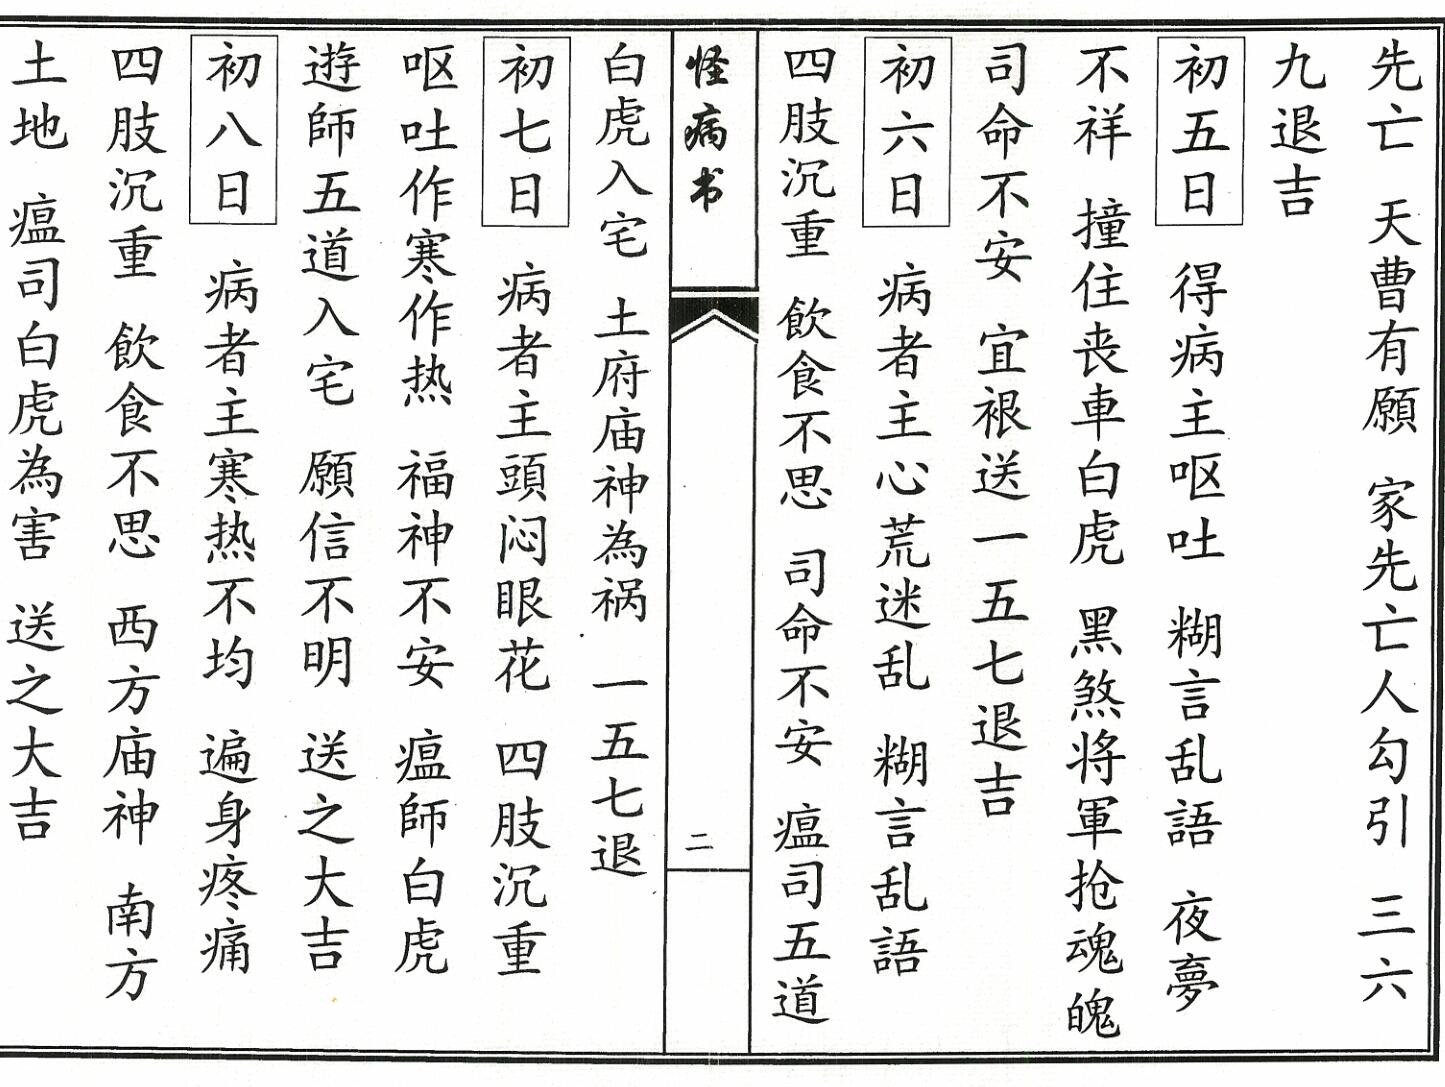 先亡 天曹有願 家先亡人勾引 三六
九退吉
初五日 得病主呕吐 糊言乱語 夜夢
不祥 撞住丧車白虎 黑煞将軍抢魂魄
司命不安 宜裉送一五七退吉
初六日 病者主心荒迷乱 糊言乱語
四肢沉重 飲食不思 司命不安 瘟司五道
怪病书
二
白虎入宅 土府庙神為祸 一五七退
初七日 病者主頭闷眼花 四肢沉重
呕吐作寒作热 福神不安 瘟師白虎
遊師五道入宅 願信不明 送之大吉
初八日 病者主寒热不均 遍身疼痛
四肢沉重 飲食不思 西方庙神 南方
土地 瘟司白虎為害 送之大吉